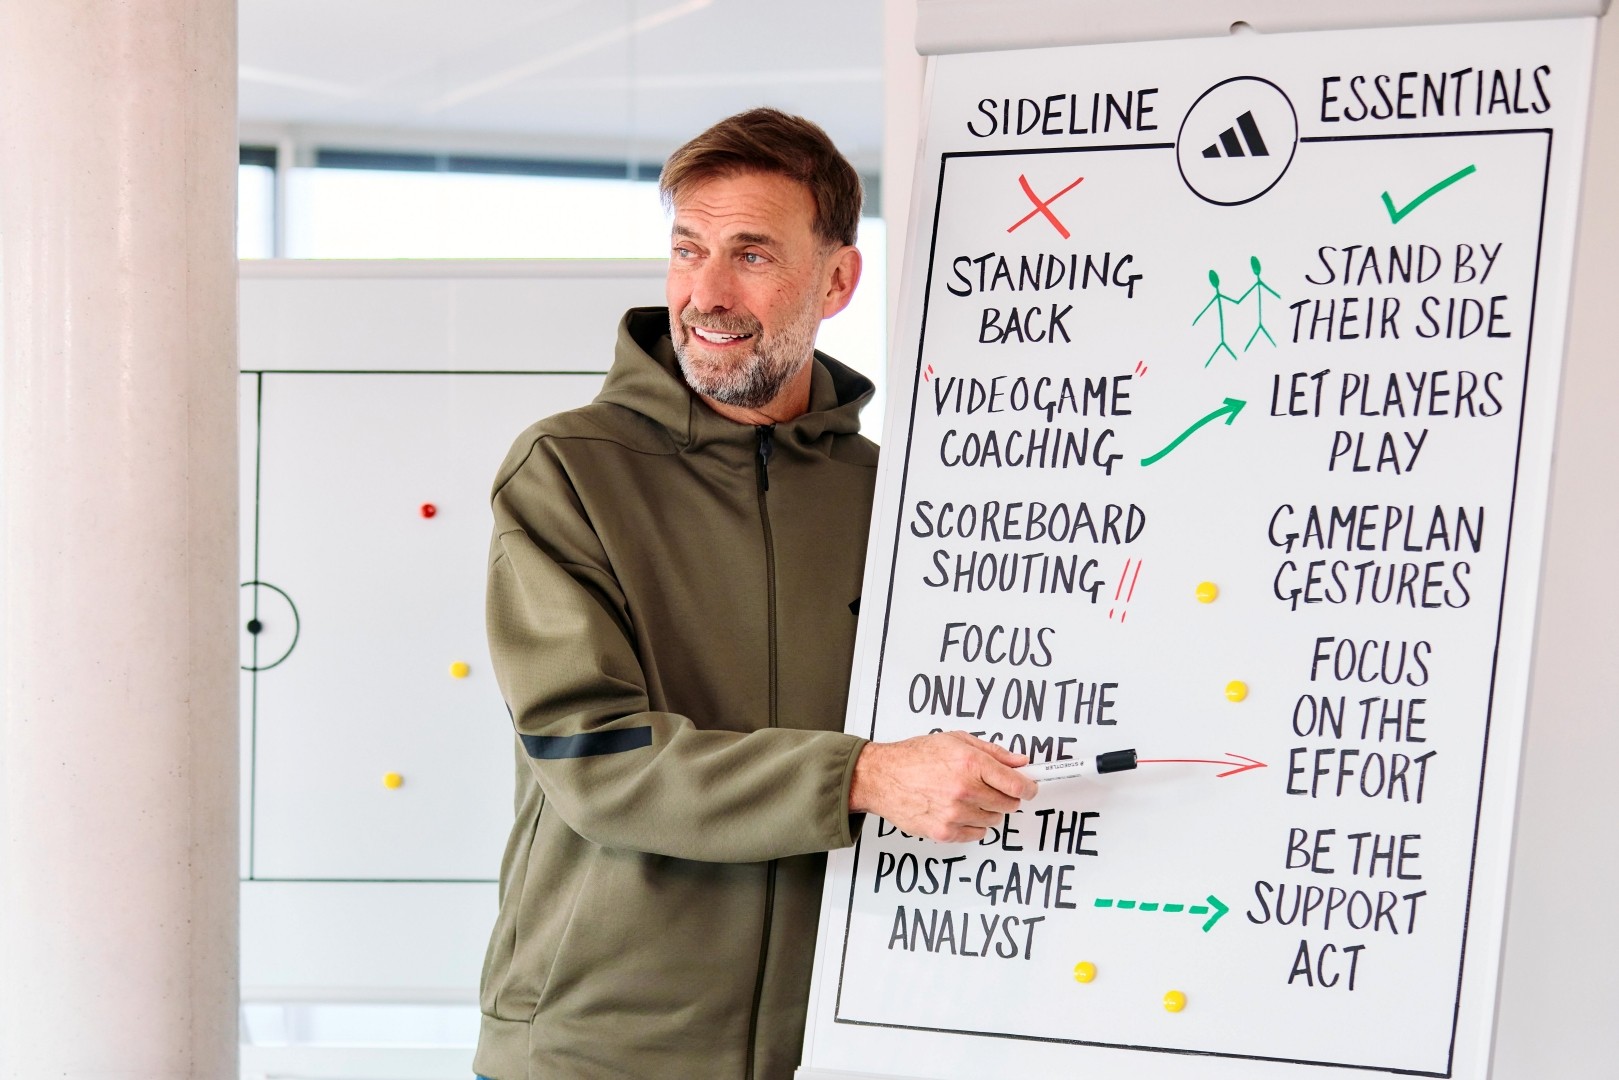 SIDELINE ESSENTIALS
STANDING
BACK
STAND BY
THEIR SIDE
"VIDEOGAME"
COACHING
LET PLAYERS
PLAY
SCOREBOARD
SHOUTING!!
GAMEPLAN
GESTURES
FOCUS
ONLY ON THE
OUTCOME
FOCUS
ON THE
EFFORT
BE THE
POST-GAME
ANALYST
BE THE
SUPPORT
ACT